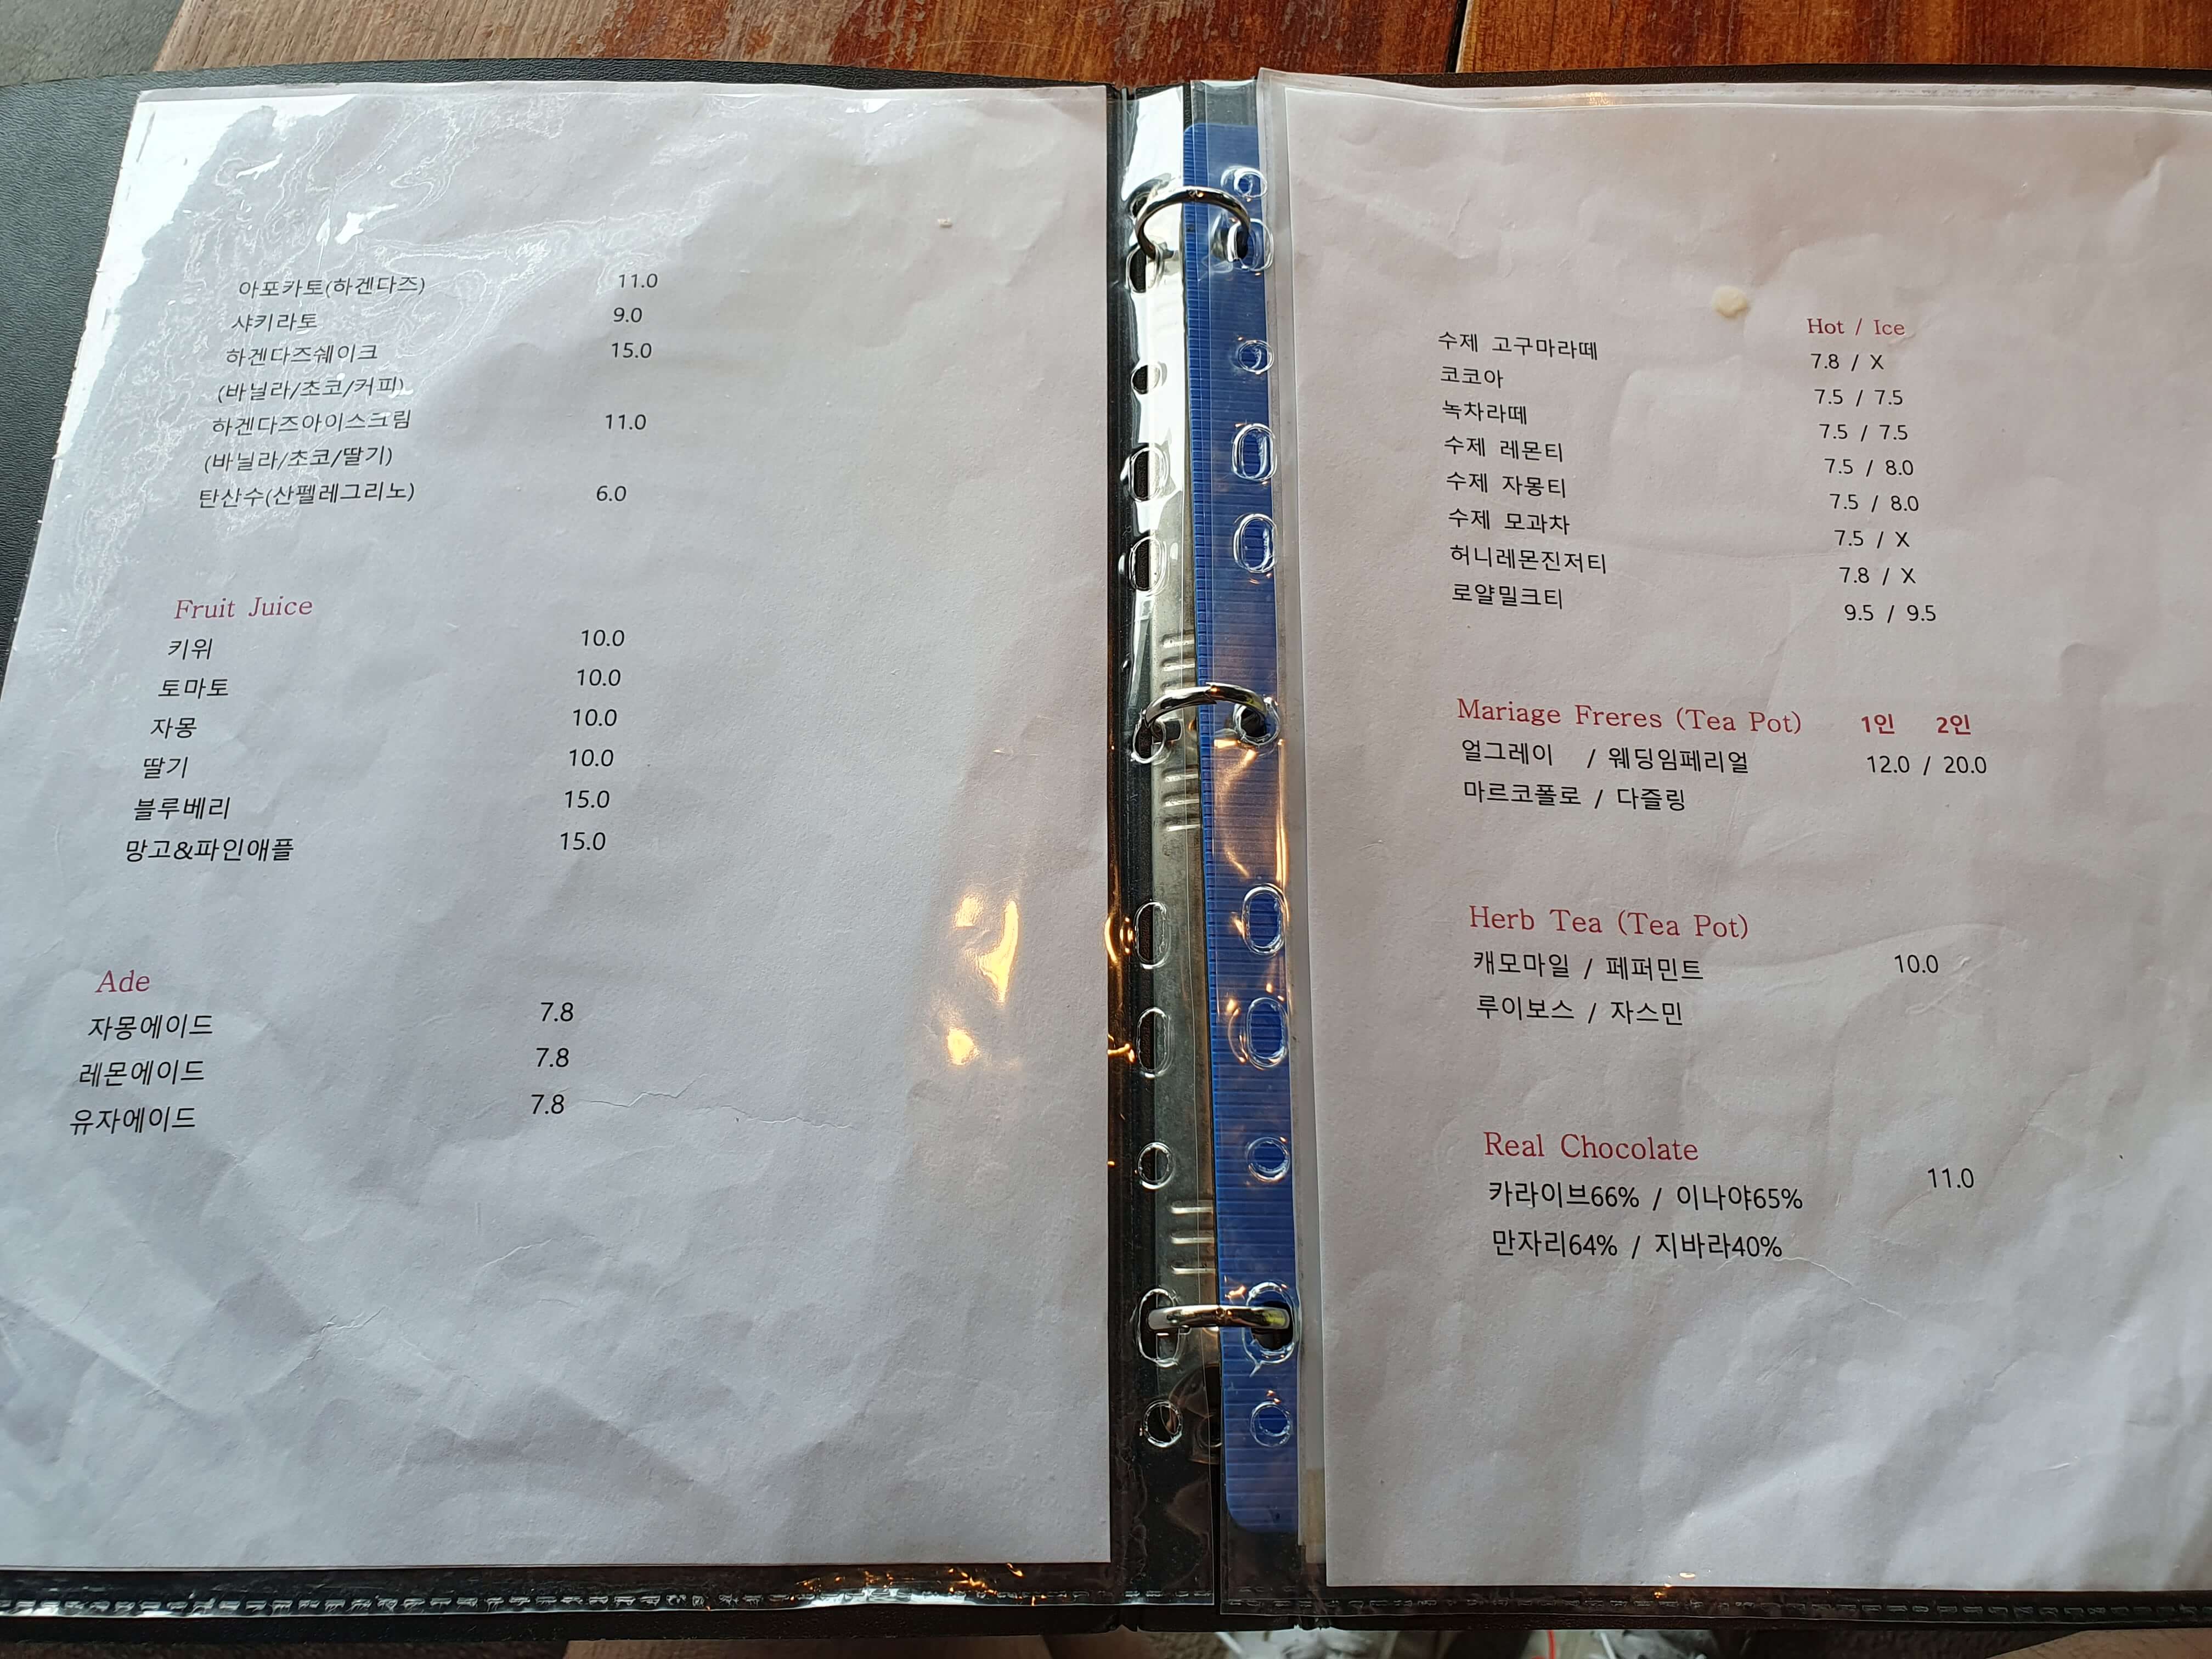 아포카토(하겐다즈) 11.0
샤키라토 9.0
하겐다즈쉐이크 15.0
(바닐라/초코/커피)
하겐다즈아이스크림 11.0
(바닐라/초코/딸기)
탄산수(산펠레그리노) 6.0
Fruit Juice
키위 10.0
토마토 10.0
자몽 10.0
딸기 10.0
블루베리 15.0
망고&파인애플 15.0
Ade
자몽에이드 7.8
레몬에이드 7.8
유자에이드 7.8
Hot / Ice
수제 고구마라떼 7.8 / X
코코아 7.5 / 7.5
녹차라떼 7.5 / 7.5
수제 레몬티 7.5 / 8.0
수제 자몽티 7.5 / 8.0
수제 모과차 7.5 / X
허니레몬진저티 7.8 / X
로얄밀크티 9.5 / 9.5
Mariage Freres (Tea Pot) 1인 2인
얼그레이 / 웨딩임페리얼 12.0 / 20.0
마르코폴로 / 다즐링
Herb Tea (Tea Pot)
캐모마일 / 페퍼민트 10.0
루이보스 / 자스민
Real Chocolate
카라이브66% / 이나야65% 11.0
만자리64% / 지바라40%